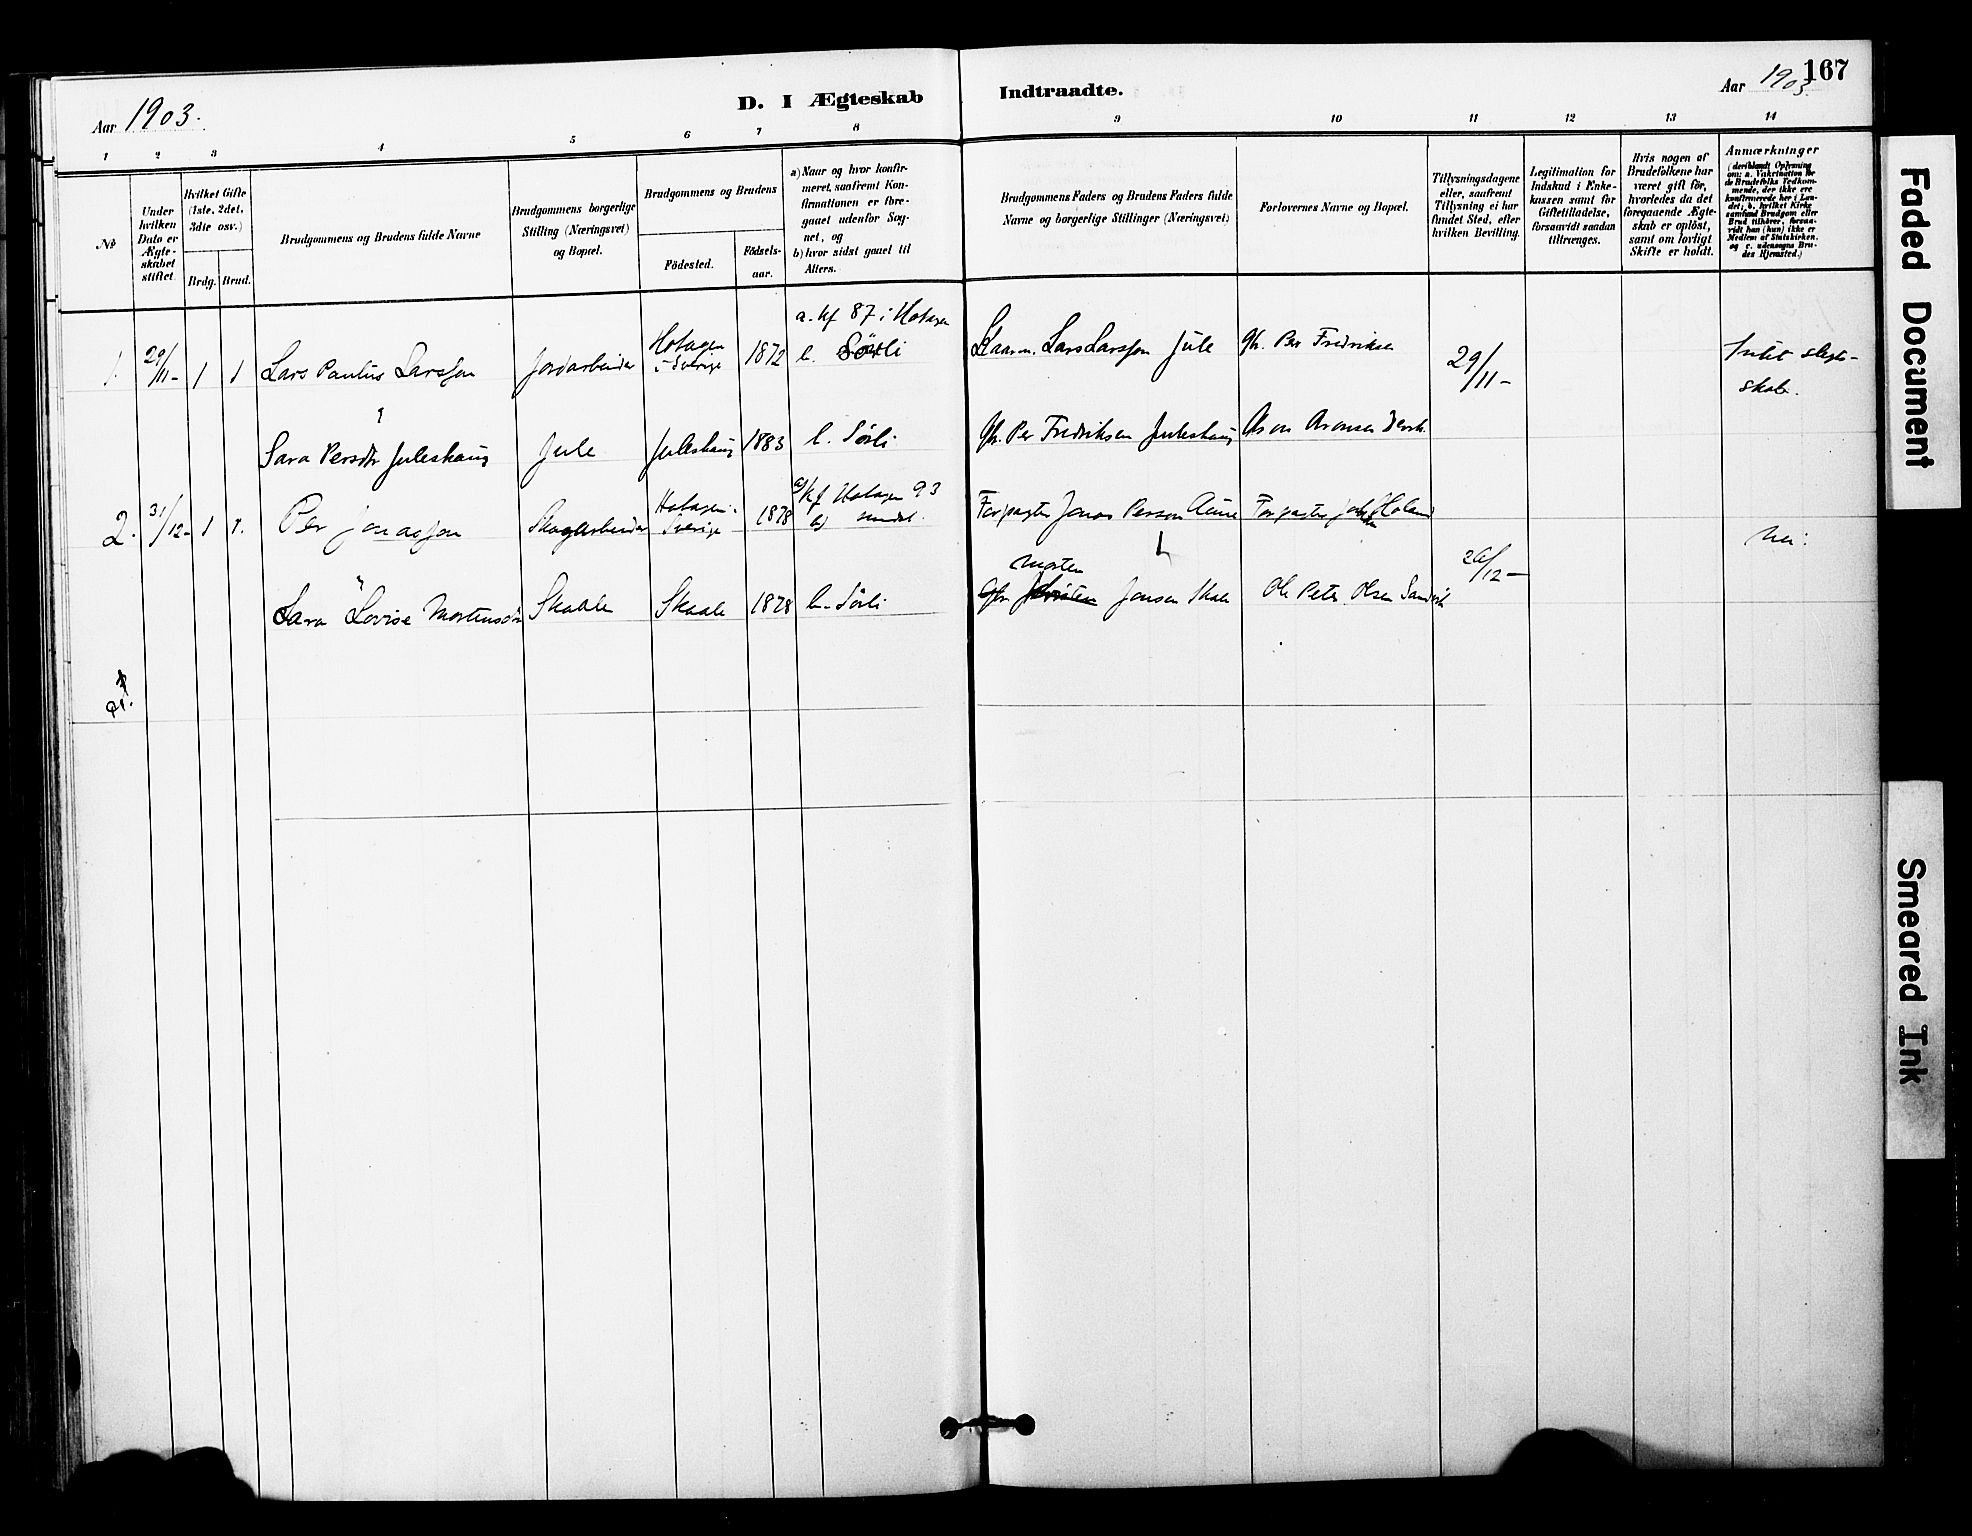 167
Aar 1903.
D. I Ægteskab Indtraadte.
Aar 1903
1 2 3 4 5 6 7 8 9 10 11 12 13 14
№
Under hvilken Dato er Ægteskabet stiftet.
Hvilket Gifte (1ste, 2det, 3die osv.)
Brdg. Brud.
Brudgommens og Brudens fulde Navne
Brudgommens borgerlige Stilling (Næringsvei) og Bopæl.
Brudgommens og Brudens
Födested.
Födselsaar.
a) Naar og hvor konfirmeret, saafremt Konfirmationen er foregaaet udenfor Sognet, og
b) hvor sidst gaaet til Alters.
Brudgommens Faders og Brudens Faders fulde Navne og borgerlige Stillinger (Næringsvei)
Forlovernes Navne og Bopæl.
Tillysningsdagene eller, saafremt Tillysning ei har fundet Sted, efter hvilken Bevilling.
Legitimation for Indskud i Enkekassen samt for Giftetilladelse, forsaavidt saadan tiltrænges.
Hvis nogen af Brudefolkene har været gift för, hvorledes da det foregaaende Ægteskab er oplöst, samt om lovligt Skifte er holdt.
Anmærkninger
(deriblandt Oplysning om: a. Vaksination for de Brudefolks Vedkommende, der ikke ere konfirmerede her i Landet; b. hvilket Kirkesamfund Brudgom eller Brud tilhörer, forsaavidt han (hun) ikke er Medlem af Statskirken, og c. udensogns Brudes Hjemsted.)
1. 29/11- 1 1 Lars Paulus Larsson Jordarbeider Hotagen i Sverige 1872 a. kf 87 i Hotagen b. Sörli Lars Larsson Jule Gbr. Per Fredriksen 29/11- Intet slegtskab.
Sara Persdtr Juleshaug Jule Juleshaug 1883 b. Sörli Gbr. Per Fredriksen Juleshaug Aron Aronsen
2. 31/12- 1 1. Per Jonasson Skogarbeider Hotagen i Sverige 1878 a) kf Hotagen 93 b) Forpagter Jonas Person Aune Forpagter 26/12- Nei.
Sara Lovise Mortensdtr Skaale Skaale 1878 b. Sörli Morten Jonsen Skale Ole Peter Olsen Sandvik
Faded Document
Smeared Ink